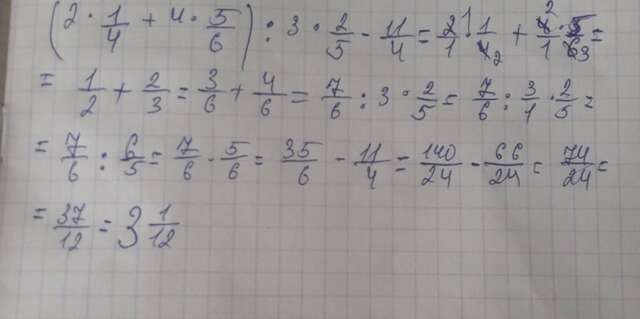 (2 · 1/4 + 4 · 5/6) : 3 · 2/5 - 11/4 = 2/1 · 1/4 2 + 2 4/1 · 5/6 3 =
= 1/2 + 2/3 = 3/6 + 4/6 = 7/6 : 3 · 2/5 = 7/6 : 3/1 · 2/5 =
= 7/6 : 6/5 = 7/6 · 5/6 = 35/6 - 11/4 = 140/24 - 66/24 = 74/24 =
= 37/12 = 3 1/12